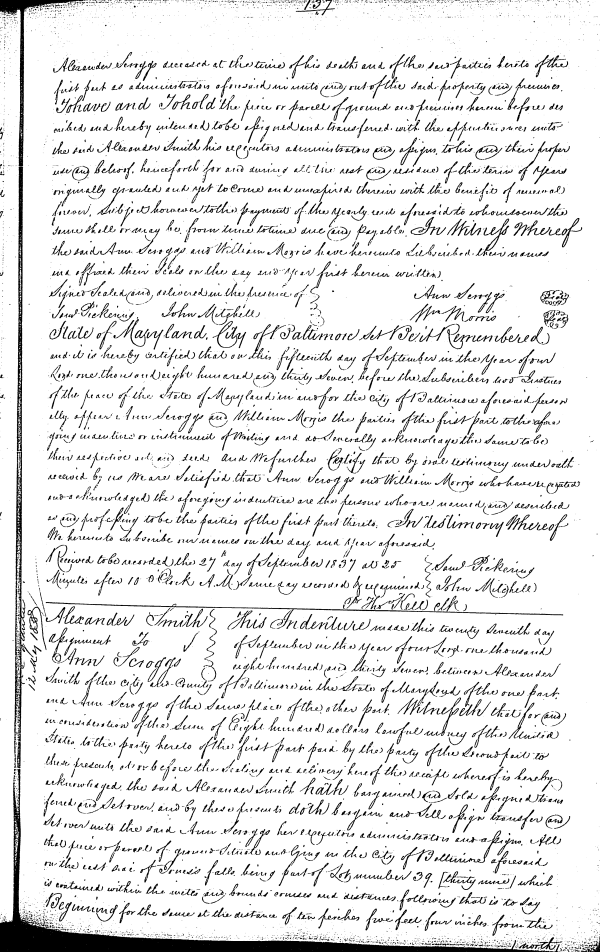 137
Alexander Scroggs deceased at the time of his death and of the said parties hereto of the
first part as administrators aforesaid in unto and out of the said property and premises.
To have and To hold the piece or parcel of ground and premises herein before des
cribed and hereby intended to be assigned and transfered with the appurtenances unto
the said Alexander Smith his executors administrators and assigns, to his and their proper
use and behoof, henceforth for and during all the rest and residue of the term of Years
originally granted and yet to come and unexpired therein with the benefit of renewal
forever, subject however to the payment of the yearly rent aforesaid to whomsoever the
same shall or may be, from time to time due and payable. In Witness Whereof
the said Ann Scroggs and William Morris have hereunto Subscribed their names
and affixed their Seals on the day and year first herein written
Signed Sealed and delivered in the presence of Ann Scroggs
Saml Pickering John Mitchell Wm Morris
State of Maryland, City of Baltimore Set Be it Remembered
and it is hereby certified that on this fifteenth day of September in the Year of our
Lord one thousand eight hundred and thirty seven, before the Subscribers two Justices
of the peace of the State of Maryland in and for the City of Baltimore aforesaid person
ally appear Ann Scroggs and William Morris the parties of the first part to the afore
going indenture or instrument of Writing and do Severally acknowledge the same to be
their respective act and deed And We further Certify that by oral testimony under oath
received by us We are Satisfied that Ann Scroggs and William Morris who have executed
and acknowledged the aforegoing indenture are the persons who are named and described
as and professing to be the parties of the first part thereto. In testimony Whereof
We hereunto Subscribe our names on the day and year aforesaid
Received to be recorded the 27th day of September 1837 at 25 Saml Pickering
Minutes after 10 O'Clock A.M. Same day recorded & examined John Mitchell
Pr Thos Kell clk
12 May 1838
Alexander Smith This Indenture made this twenty seventh day
assignment To of September in the year of our Lord one thousand
Ann Scroggs eight hundred and thirty seven, between Alexander
Smith of the City and County of Baltimore in the State of Maryland of the one part,
and Ann Scroggs of the Same place of the other part, Witnesseth that for and
in consideration of the Sum of Eight hundred dollars lawful money of the United
States to the party hereto of the first part paid by the party of the Second part to
these presents at or before the Sealing and delivery hereof the receipt whereof is hereby
acknowledged, the said Alexander Smith hath bargained and Sold assigned trans
ferred and Set over, and by these presents doth bargain and Sell assign transfer and
Set over unto the said Ann Scroggs her executors administrators and assigns, All
that piece or parcel of ground Situate and lying in the City of Baltimore aforesaid
on the east side of Jones's falls, being part of Lot number 39. [thirty nine] which
is contained within the metes and bounds courses and distances following that is to say
Beginning for the same at the distance of ten perches five feet four inches from the
north